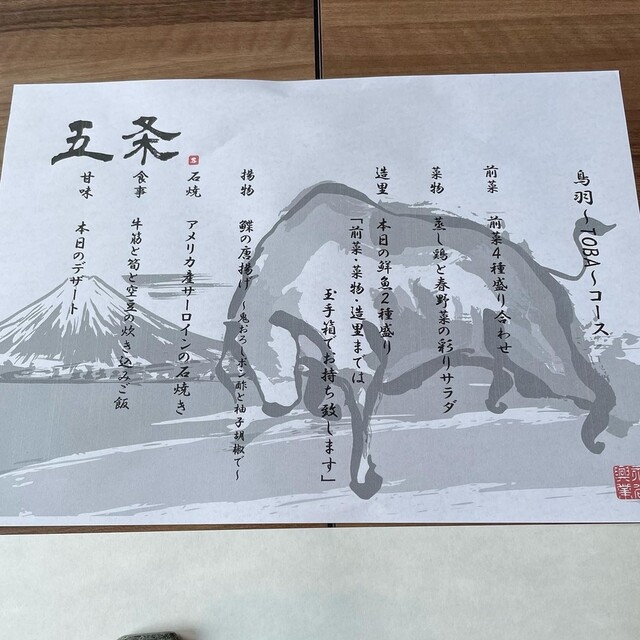 鳥羽～TOBA～コース
前菜 前菜4種盛り合わせ
菜物 蒸し鶏と春野菜の彩りサラダ
造里 本日の鮮魚2種盛り
「前菜・菜物・造里までは
玉手箱でお持ち致します」
揚物 鰈の唐揚げ ～鬼おろしポン酢と柚子胡椒で～
石焼 アメリカ産サーロインの石焼き
食事 牛筋と筍と空豆の炊き込みご飯
甘味 本日のデザート
五条